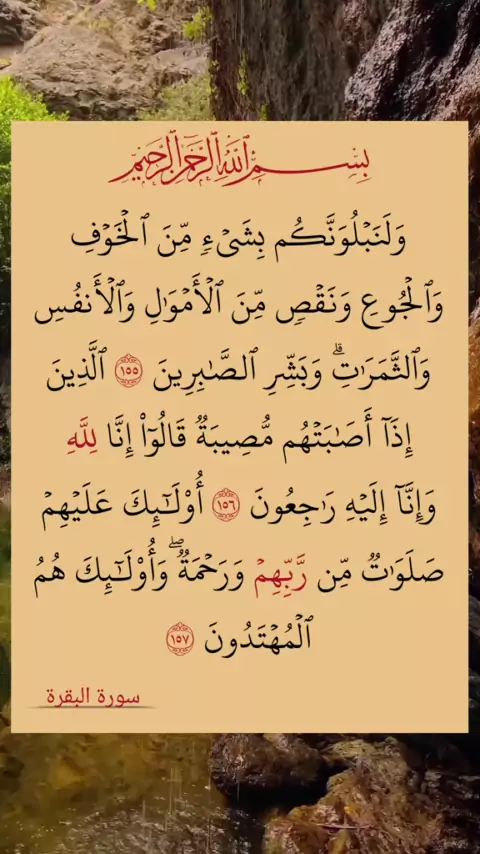 بِسْمِ ٱللَّهِ ٱلرَّحْمَٰنِ ٱلرَّحِيمِ
وَلَنَبْلُوَنَّكُم بِشَىْءٍ مِّنَ ٱلْخَوْفِ
وَٱلْجُوعِ وَنَقْصٍ مِّنَ ٱلْأَمْوَٰلِ وَٱلْأَنفُسِ
وَٱلثَّمَرَٰتِ ۗ وَبَشِّرِ ٱلصَّٰبِرِينَ ١٥٥ ٱلَّذِينَ
إِذَآ أَصَٰبَتْهُم مُّصِيبَةٌ قَالُوٓا۟ إِنَّا لِلَّهِ
وَإِنَّآ إِلَيْهِ رَٰجِعُونَ ١٥٦ أُو۟لَٰٓئِكَ عَلَيْهِمْ
صَلَوَٰتٌ مِّن رَّبِّهِمْ وَرَحْمَةٌ ۖ وَأُو۟لَٰٓئِكَ هُمُ
ٱلْمُهْتَدُونَ ١٥٧
سورة البقرة